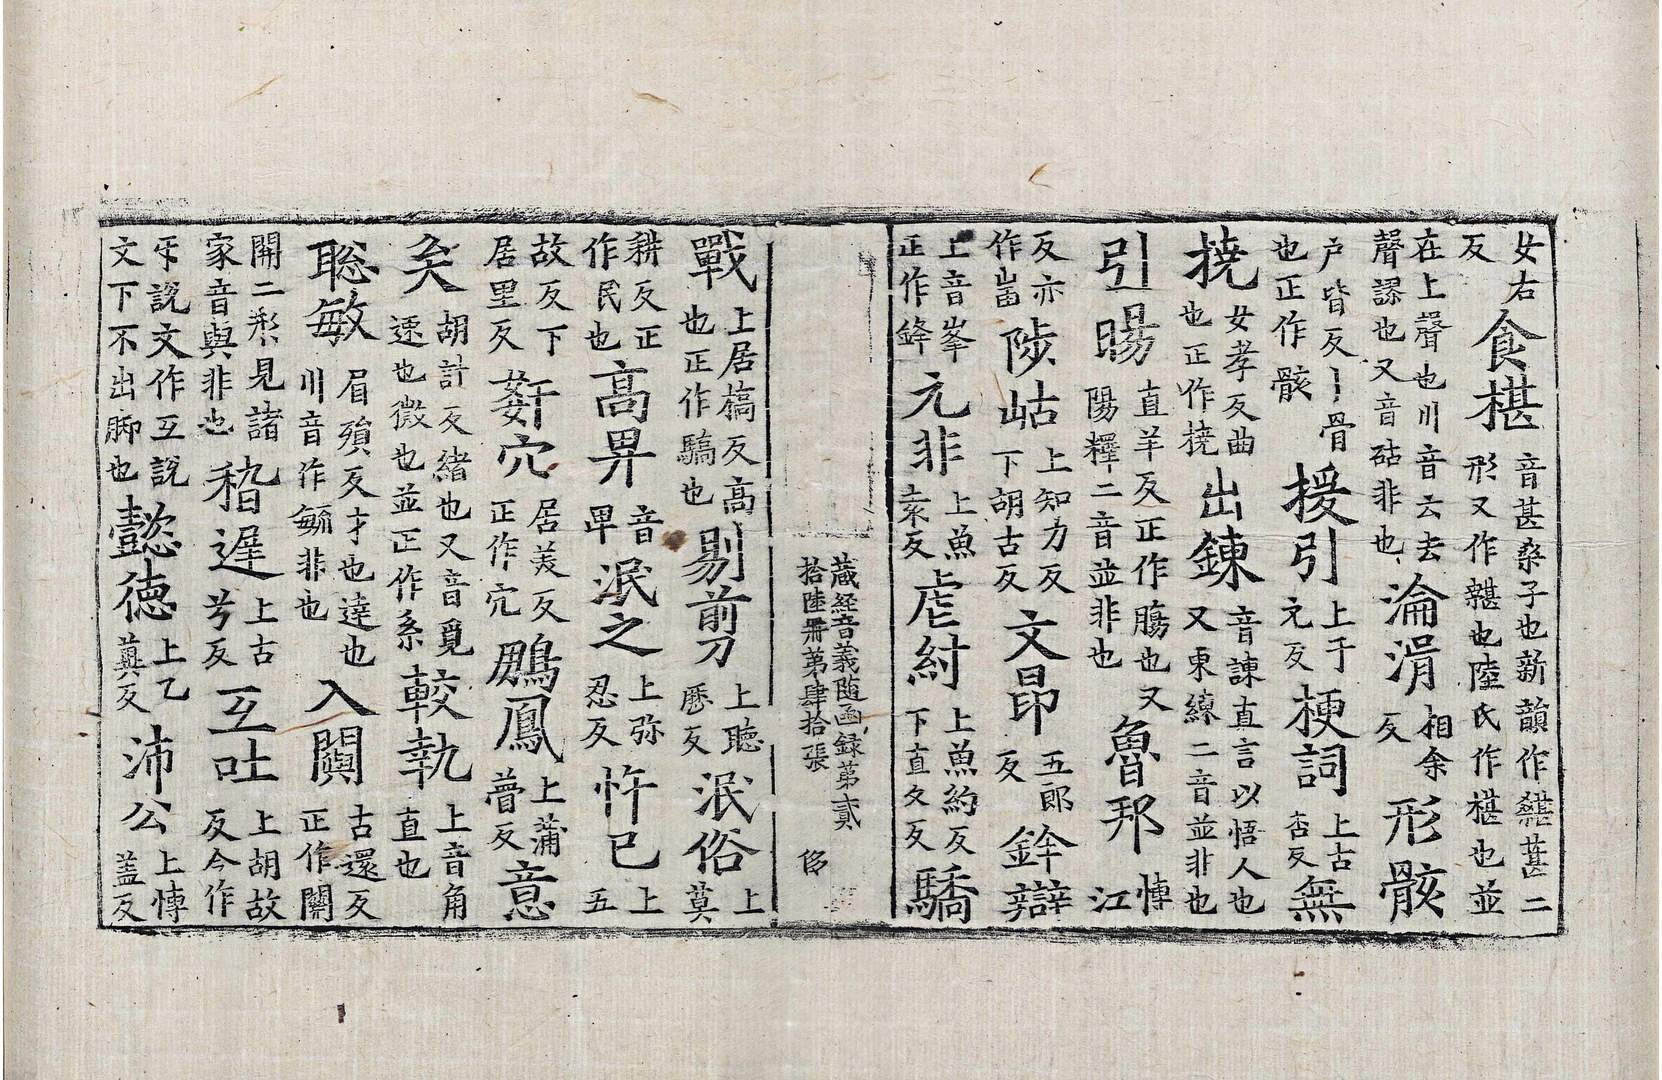 女右反食椹音甚桑子也新韻作椹葚二形又作糂也陸氏作椹也並
在上聲也川音云去聲謬也又音砧非也淪湑相余反形骸
户皆反丨骨也正作骸援引上于元反梗詞上古杏反無
撓女孝反曲也正作橈出鍊音諫直言以悟人也又東練二音並非也
引暘直羊反正作腸也又陽釋二音並非也魯邦博江
反亦作峀陟岵上知力反下胡古反文昂五郎反鉾辯
上音峯正作鋒元非上魚袁反虐紂上魚約反下直夂反驕
藏経音義随函録第貳
拾陸冊第肆拾張
侈
戰上居橋反高也正作驕也剔剪上聽歷反泯俗上莫
耕反正作民也高畀音卑泯之上弥忍反忤已上五
故反下居里反姧宄居美反正作宄鵬鳳上蒲曾反意
矣胡計反緒也又音覓速也微也並正作系較執上音角直也
聡敏眉殞反才也達也川音作毓非也入闃古還反正作關
開二形見諸家音與非也稽遲上古兮反互吐上胡故反今作
㸦說文作互說文下不出脚也懿德上乙冀反沛公上博盖反